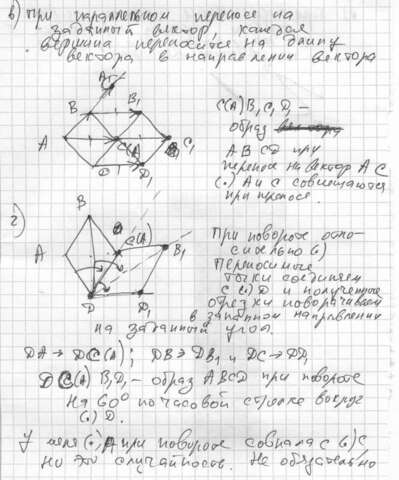 в) при параллельном переносе на
заданный вектор, каждая
вершина переносится на длину
вектора в направлении вектора
A₁
B
B₁
A
C(A)
C₁
D
D₁
C(A)B₁C₁D₁ –
образ
ABCD при
переносе на вектор AC
(.) A и C совмещаются
при переносе.
г)
B
C(A)
A
B₁
D
D₁
При повороте отно-
сительно (.)
Переносимые
точки соединяем
с (.) D и полученные
отрезки поворачиваем
в заданном направлении
на заданный угол.
DA → DC(A); DB → DB₁ и DC → DD₁
DC(A)B₁D₁ – образ ABCD при повороте
на 60° по часовой стрелке вокруг
(.) D.
У меня (.) A при повороте совпала с (.) C
но это случайность. Не обязательно